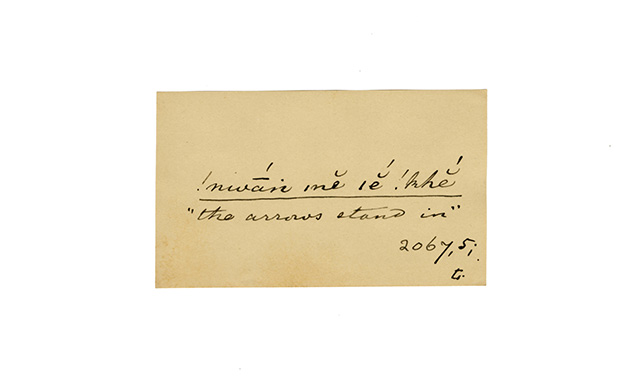 !nwā́ṅ mĕ ıĕ́ !khĕ́
"the arrows stand in"
2067,5;
L.